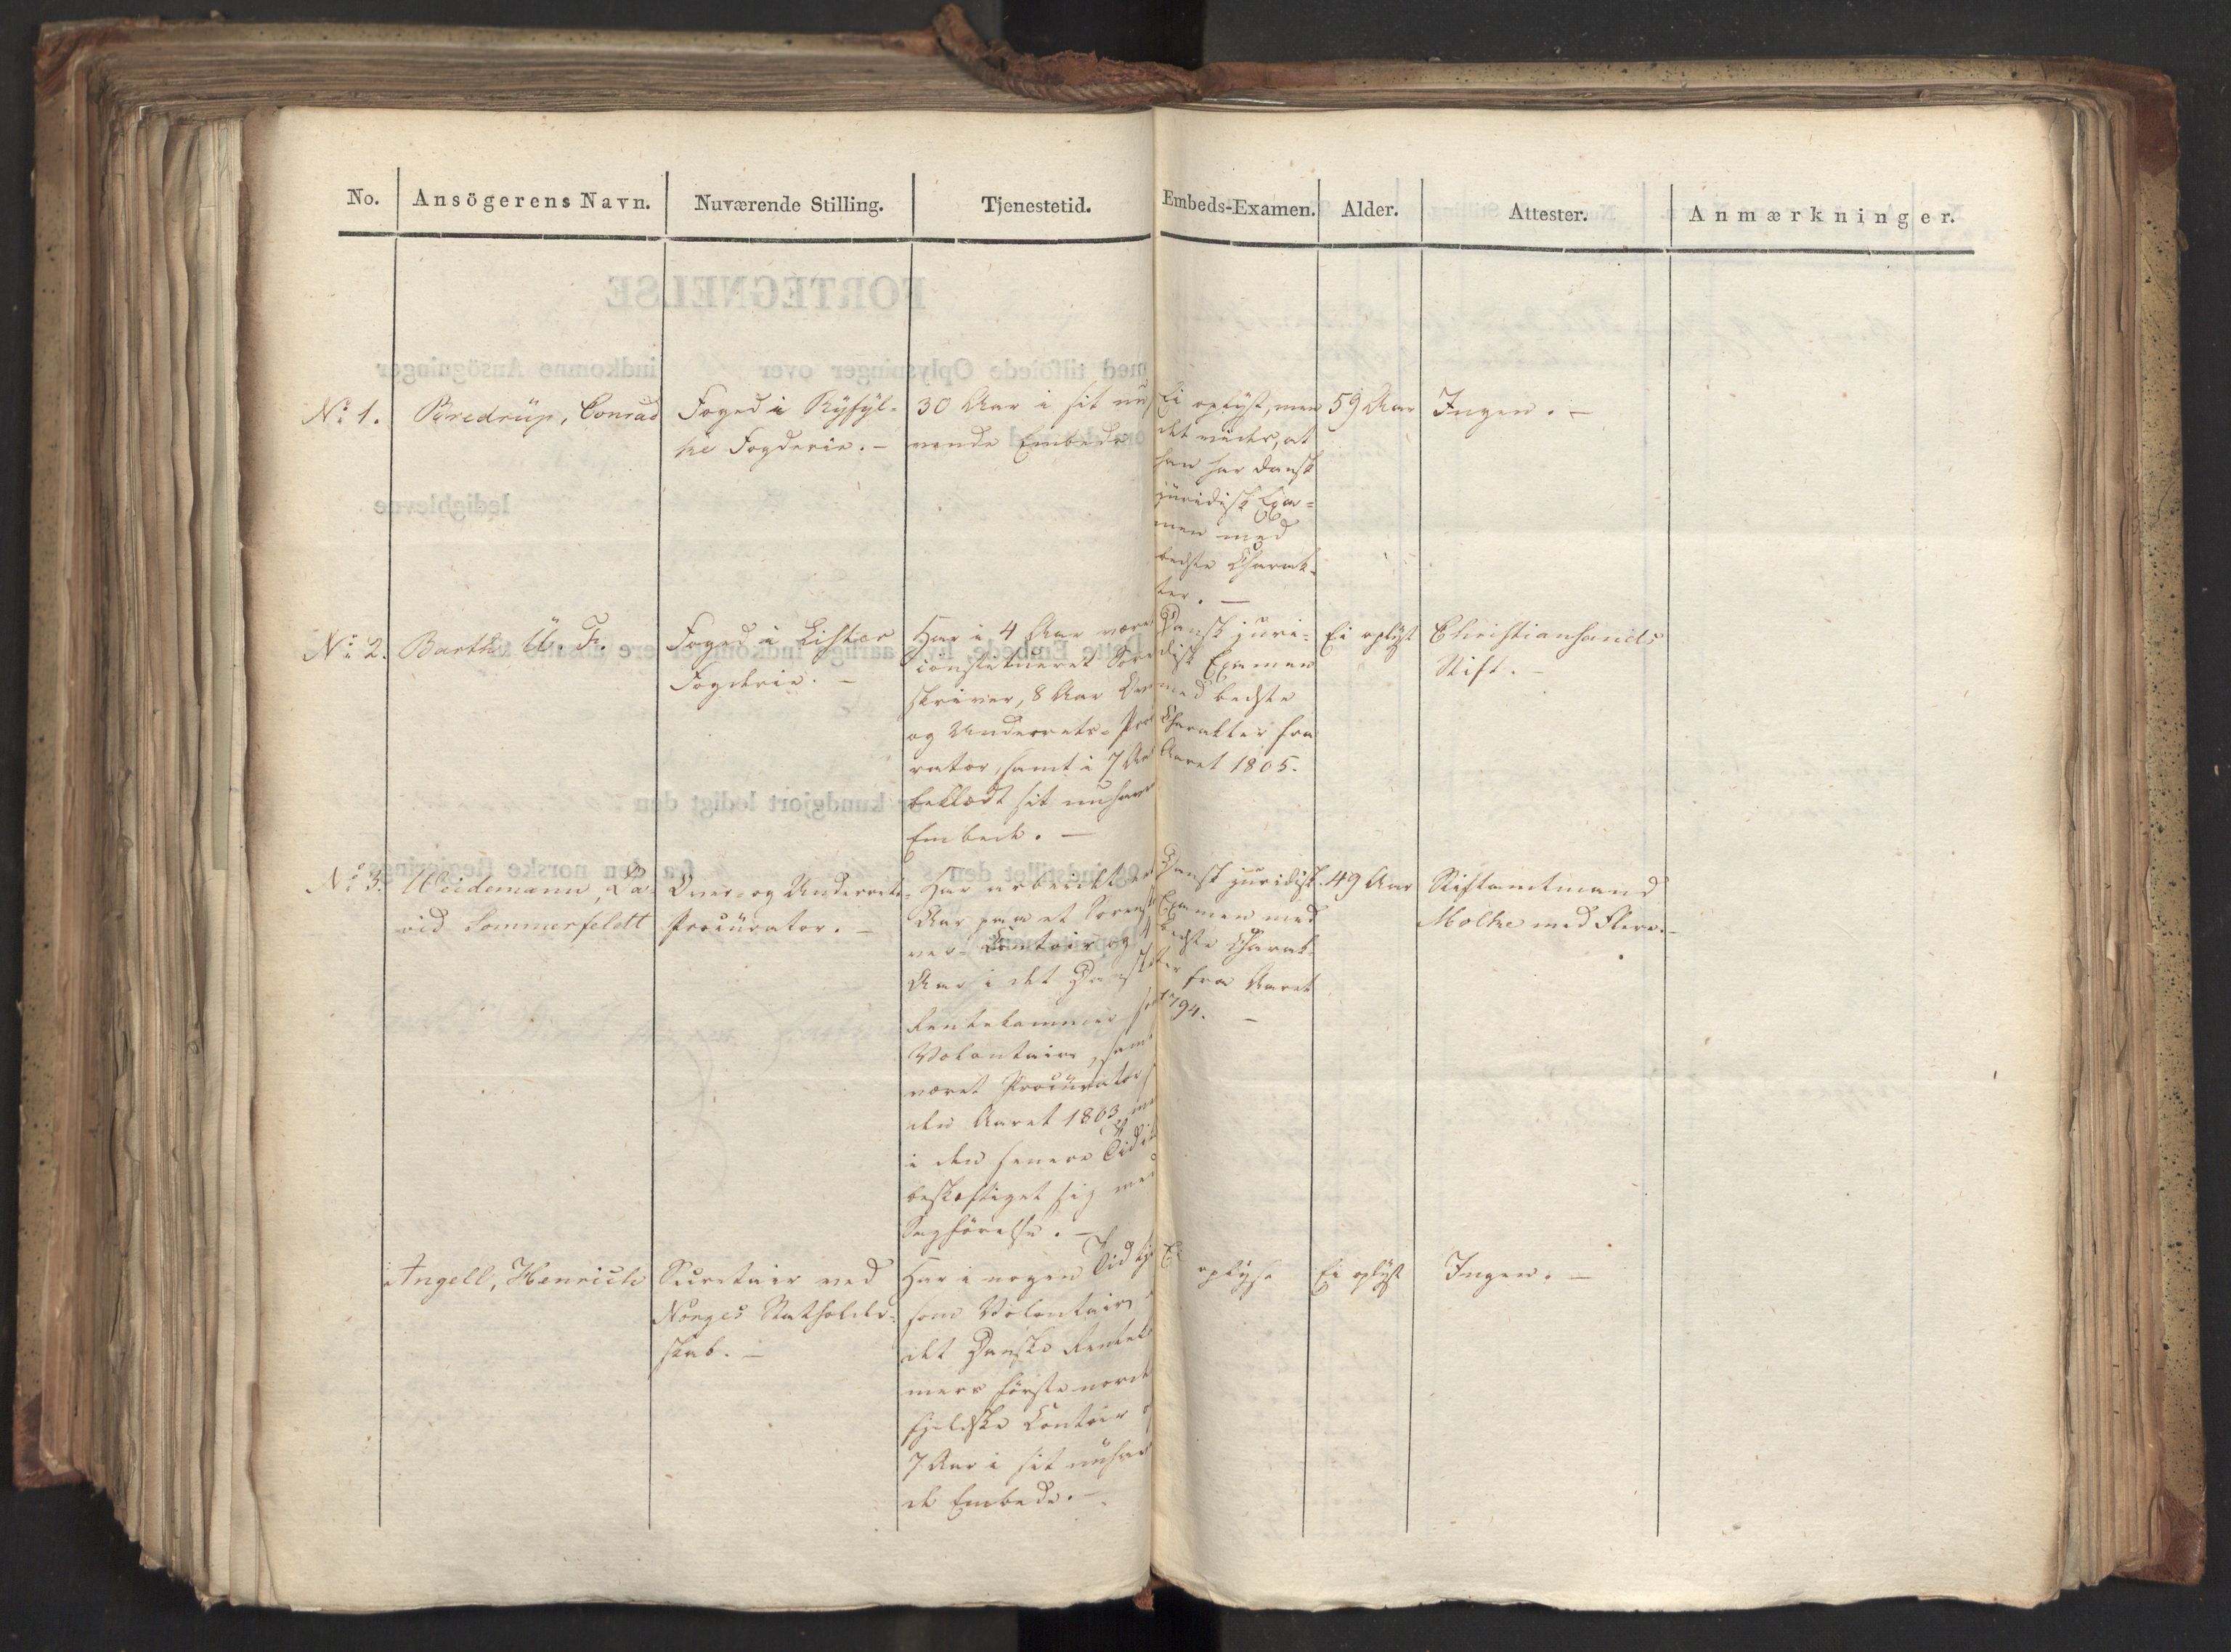 No.
Ansögerens Navn.
Nuværende Stilling.
Tjenestetid.
Embeds-Examen.
Alder.
Attester.
Anmærkninger.
No 1.
Bredrüp, Conrad
Foged i Ryfyl-
ke Fogderie. -
30 Aar i sit nu
vende Embede
Ei oplyst, men
det vides, at
han har dansk
juridisk Exa-
men med
bedste Charak-
ter. -
59 Aar
Ingen. -
No 2.
Barth U. F.
Foged i Lister
Fogderie. -
Har i 4 Aar været
constitueret Soren
skriver, 8 Aar Over
og Underrets-Proc
rator, samt i 7 Aar
beklædt sit nuhave
Embede. -
Dansk juri-
disk Examen
med bedste
Charakter fra
Aaret 1805.
Ei oplyst
Christiansands
Stift. -
No 3.
Weidemann, Da-
vid Sommerfeldt
Over- og Underrets-
Procürator. -
Har arbeidet
Aar paa et Sorenskri
ver-Contoir og
Aar i det Danske
Rentekammer som
Volontair, samt
været Procürator si
den Aaret 1803, men
i den senere Tid ik
beskæftiget sig med
Sagförelse. -
Dansk juridisk
Examen med
bedste Charak-
ter fra Aaret
1794. -
49 Aar
Stiftamtmand
Moltke med Flere. -
Angell, Henrich
Secretair ved
Norges Statholder-
skab. -
Har i nogen Tid tje
som Volontair i
det Danske Renteka
mers förste norden
fjeldske Contoir og
7 Aar i sit nuhaven
de Embede. -
Ei oplyst
Ei oplyst
Ingen. -